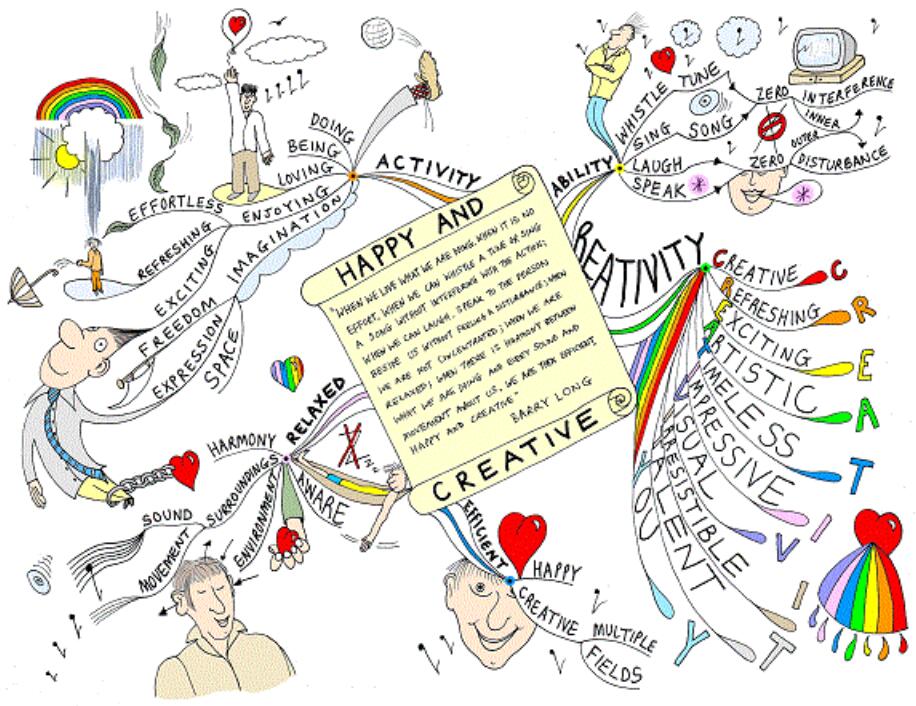 HAPPY AND
"WHEN WE LOVE WHAT WE ARE DOING, WHEN IT IS NO
EFFORT, WHEN WE CAN WHISTLE A TUNE OR SING
A SONG WITHOUT INTERFERING WITH THE ACTION;
WHEN WE CAN LAUGH, SPEAK TO THE PERSON
BESIDE US WITHOUT FEELING A DISTURBANCE; WHEN
WE ARE NOT CONCENTRATED; WHEN WE ARE
RELAXED; WHEN THERE IS HARMONY BETWEEN
WHAT WE ARE DOING AND EVERY SOUND AND
MOVEMENT ABOUT US, WE ARE THEN EFFICIENT,
HAPPY AND CREATIVE"
BARRY LONG
CREATIVE
ABILITY
WHISTLE TUNE
SING SONG
ZERO INTERFERENCE
INNER
OUTER
LAUGH
SPEAK
ZERO DISTURBANCE
CREATIVITY
CREATIVE C
REFRESHING R
EXCITING E
ARTISTIC A
TIMELESS T
IMPRESSIVE I
VISUAL V
IRRESISTIBLE I
TALENT T
YOU Y
EFFICIENT
HAPPY
CREATIVE
MULTIPLE
FIELDS
RELAXED
HARMONY
SURROUNDINGS
SOUND
MOVEMENT
ENVIRONMENT
AWARE
ACTIVITY
DOING
BEING
LOVING
ENJOYING
EFFORTLESS
REFRESHING
EXCITING
IMAGINATION
FREEDOM
EXPRESSION
SPACE